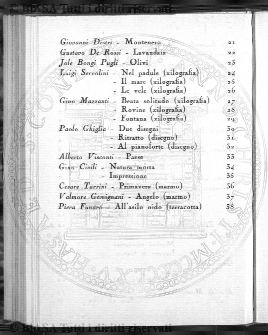 Giovanni Destri - Montenero 21
Gustavo De Rossi - Lavandaie 22
Jole Bongi Pugli - Olivi 23
Luigi Servolini - Nel padule (xilografia) 24
- Il mare (xilografia) 25
- Le vele (xilografia) 26
Gino Mazzanti - Beata solitudo (xilografia) 27
- Rovine (xilografia) 28
- Fontana (xilografia) 29
Paolo Ghiglia - Due disegni 30
- Ritratto (disegno) 31
- Al pianoforte (disegno) 32
Alberto Visconti - Paese 33
Gino Cinili - Natura morta 34
- Impressione 35
Cesare Tarrini - Primavera (marmo) 36
Valmore Gemignani - Angelo (marmo) 37
Piera Funaro - All'asilo nido (terracotta) 38